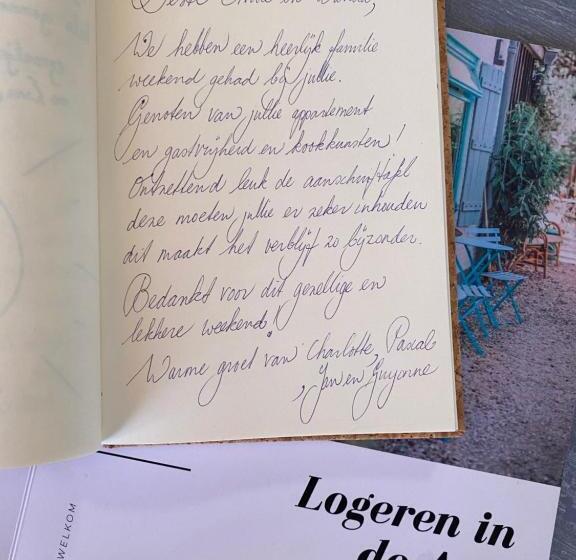 We hebben een heerlijk familie
weekend gehad bij jullie.
Genoten van jullie appartement
en gastvrijheid en kookkunsten!
Ontzettend leuk de aanschuiftafel
deze moeten jullie er zeker inhouden
dit maakt het verblijf zo bijzonder.
Bedankt voor dit gezellige en
lekkere weekend!
Warme groet van Charlotte, Pascal
, Jan en Guyonne
WELKOM
Logeren in
de A